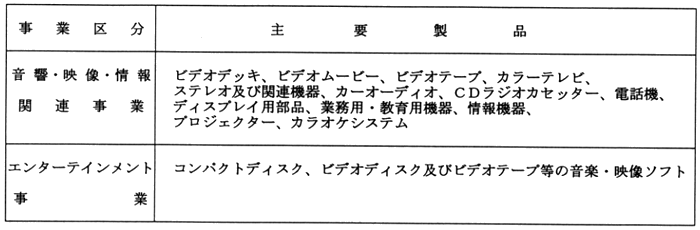 事業区分 主要製品
音響・映像・情報関連事業 ビデオデッキ、ビデオムービー、ビデオテープ、カラーテレビ、
ステレオ及び関連機器、カーオーディオ、CDラジオカセッター、電話機、
ディスプレイ用部品、業務用・教育用機器、情報機器、
プロジェクター、カラオケシステム
エンターテインメント事業 コンパクトディスク、ビデオディスク及びビデオテープ等の音楽・映像ソフト